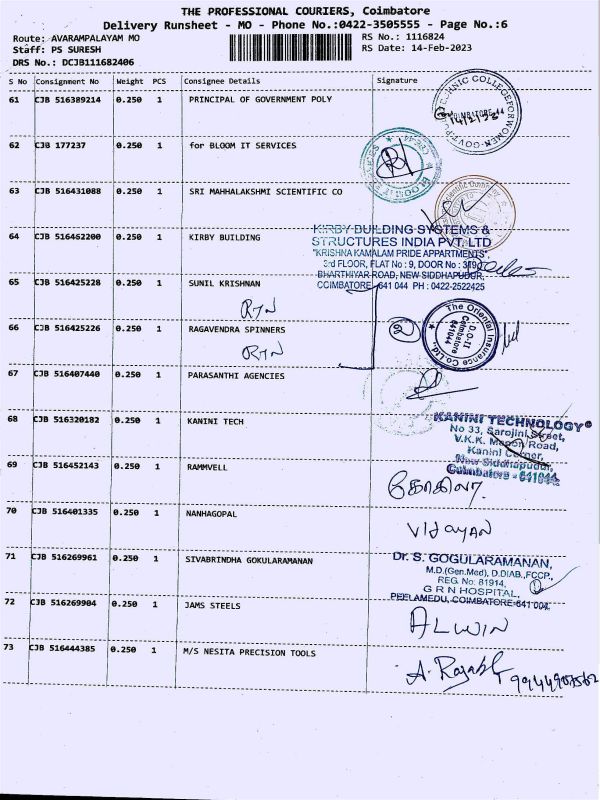 THE PROFESSIONAL COURIERS, Coimbatore
Delivery Runsheet - MO - Phone No.:0422-3505555 - Page No.:6
Route: AVARAMPALAYAM MO
RS No.: 1116824
Staff: PS SURESH
RS Date: 14-Feb-2023
DRS No.: DCJB111682406
S No Consignment No Weight PCS Consignee Details Signature
61 CJB 516389214 0.250 1 PRINCIPAL OF GOVERNMENT POLY
62 CJB 177237 0.250 1 for BLOOM IT SERVICES
63 CJB 516431088 0.250 1 SRI MAHHALAKSHMI SCIENTIFIC CO
64 CJB 516462200 0.250 1 KIRBY BUILDING
KIRBY BUILDING SYSTEMS &
STRUCTURES INDIA PVT. LTD
"KRISHNA KAMALAM PRIDE APPARTMENTS",
3rd FLOOR, FLAT No : 9, DOOR No :
BHARTHIYAR ROAD, NEW SIDDHAPUDUR,
COIMBATORE - 641 044 PH : 0422-2522425
65 CJB 516425228 0.250 1 SUNIL KRISHNAN
RTN
66 CJB 516425226 0.250 1 RAGAVENDRA SPINNERS
RTN
The Oriental Insurance Co Ltd.
D.O-II
Coimbatore
641044
67 CJB 516407440 0.250 1 PARASANTHI AGENCIES
68 CJB 516320182 0.250 1 KANINI TECH
KANINI TECHNOLOGY
No 33, Sarojini Street,
V.K.K. Menon Road,
Kanini Corner,
New Siddhapudur,
Coimbatore - 641044
69 CJB 516452143 0.250 1 RAMMVELL
கோகிலா.
70 CJB 516401335 0.250 1 NANHAGOPAL
VIJAYAN
71 CJB 516269961 0.250 1 SIVABRINDHA GOKULARAMANAN
Dr. S. GOGULARAMANAN,
M.D.(Gen.Med), D.DIAB.,FCCP.,
REG. No: 81914,
G R N HOSPITAL,
PEELAMEDU, COIMBATORE-641 004.
72 CJB 516269904 0.250 1 JAMS STEELS
ALWIN
73 CJB 516444385 0.250 1 M/S NESITA PRECISION TOOLS